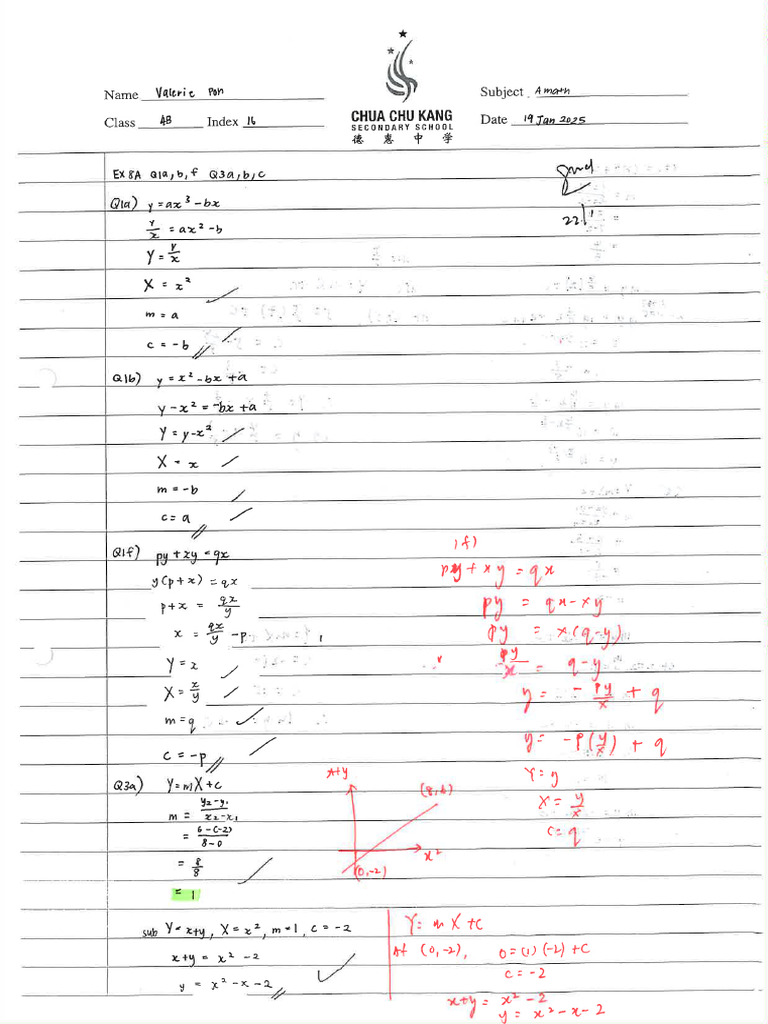 Name Valerie Pon
Subject Amath
Class 4B Index 16
CHUA CHU KANG
SECONDARY SCHOOL
德惠中学
Date 19 Jan 2025
Ex 8A Q1a, b, f Q3a, b, c
good
22/1
Q1a) y = ax³ - bx
y/x = ax² - b
Y = y/x
X = x²
m = a
c = -b
Q1b) y = x² - bx + a
y - x² = -bx + a
Y = y - x²
X = x
m = -b
c = a
Q1f) py + xy = qx
y(p + x) = qx
p + x = qx/y
x = qx/y - p
Y = x
X = x/y
m = q
c = -p
1f)
py + xy = qx
py = qx - xy
py = x(q - y)
py/x = q - y
y = - py/x + q
y = -p(y/x) + q
Y = y
X = y/x
c = q
Q3a) Y = mX + c
m = y₂ - y₁/x₂ - x₁
= 6 - (-2)/8 - 0
= 8/8
= 1
x+y
(8,6)
x²
(0,-2)
sub Y = x+y, X = x², m = 1, c = -2
x+y = x² - 2
y = x² - x - 2
Y = mX + c
At (0,-2), 0 = (1)(-2) + c
c = -2
x+y = x² - 2
y = x² - x - 2